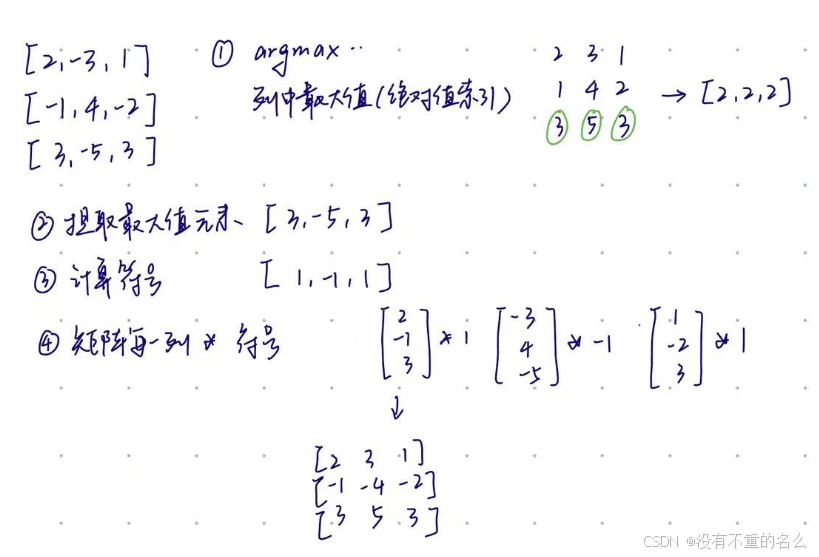 [2,-3,1] ① argmax..
2 3 1
列中最大值(绝对值索引)
[-1,4,-2]
1 4 2 → [2,2,2]
[3,-5,3]
3 5 3
② 提取最大值元素、 [3,-5,3]
③ 计算符号 [1,-1,1]
④ 矩阵每一列 * 符号
[2 -1 3] * 1 [-3 4 -5] * -1 [1 -2 3] * 1
↓
[2 3 1]
[-1 -4 -2]
[3 5 3]
CSDN @没有不重的名么